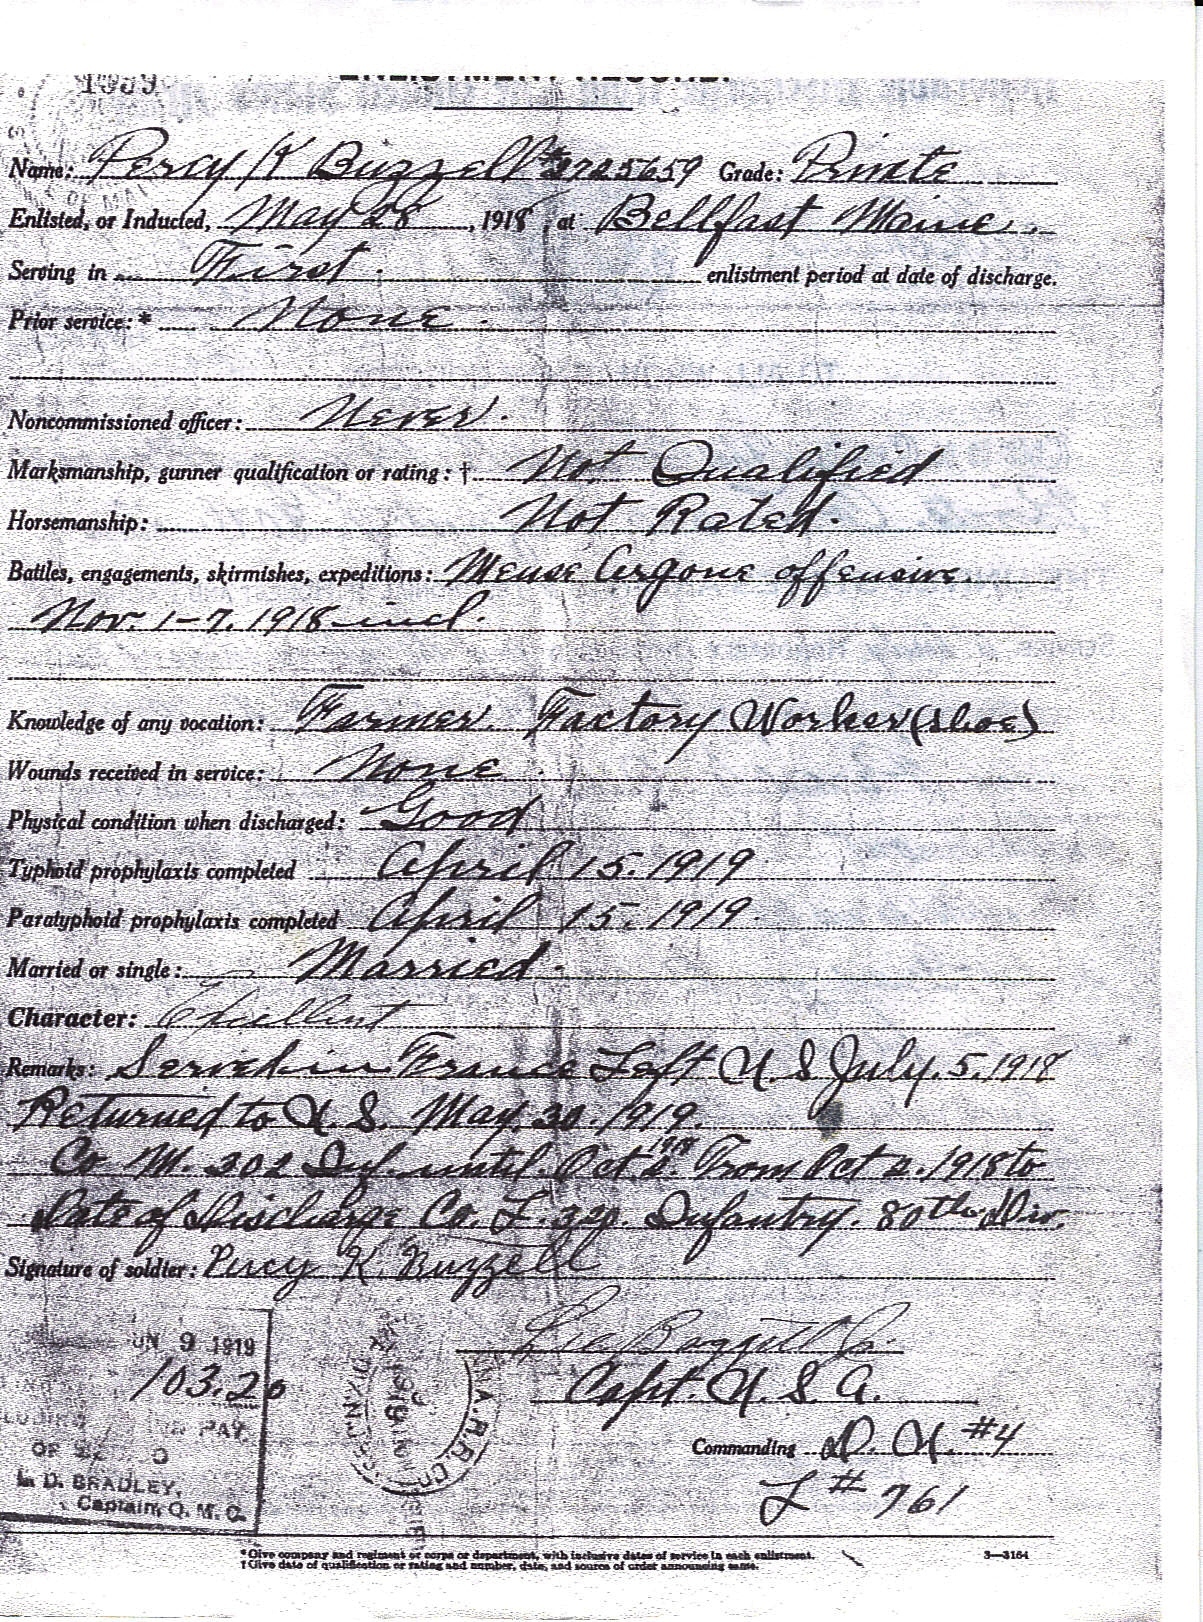 ENLISTMENT RECORD.
Name: Percy K Buzzell # 2725659 Grade: Private
Enlisted, or Inducted, May 28, 1918, at Bellfast Maine.
Serving in First. enlistment period at date of discharge.
Prior service: * None.
Noncommissioned officer: Never.
Marksmanship, gunner qualification or rating: † Not Qualified
Horsemanship: Not Rated.
Battles, engagements, skirmishes, expeditions: Meuse Argone offensive.
Nov. 1-7, 1918 incl.
Knowledge of any vocation: Farmer. Factory Worker (shoe)
Wounds received in service: None.
Physical condition when discharged: Good
Typhoid prophylaxis completed April 15. 1919
Paratyphoid prophylaxis completed April 15. 1919.
Married or single: Married.
Character: Excellent
Remarks: Served in France Left U S July. 5. 1918
Returned to U. S. May. 30. 1919.
Co M. 302 Inf. until Oct 2" 1918 From Oct 2. 1918 to
Date of Discharge Co. L. 320. Infantry. 80th Div.
Signature of soldier: Percy K. Buzzell
Capt. U. S. A.
Commanding D. U. #4
L # 761
9 1919
103.20
PAY.
OF
L. D. BRADLEY,
Captain, Q. M. C.
* Give company and regiment or corps or department, with inclusive dates of service in each enlistment.
† Give date of qualification or rating and number, date, and source of order announcing same.
3—3164